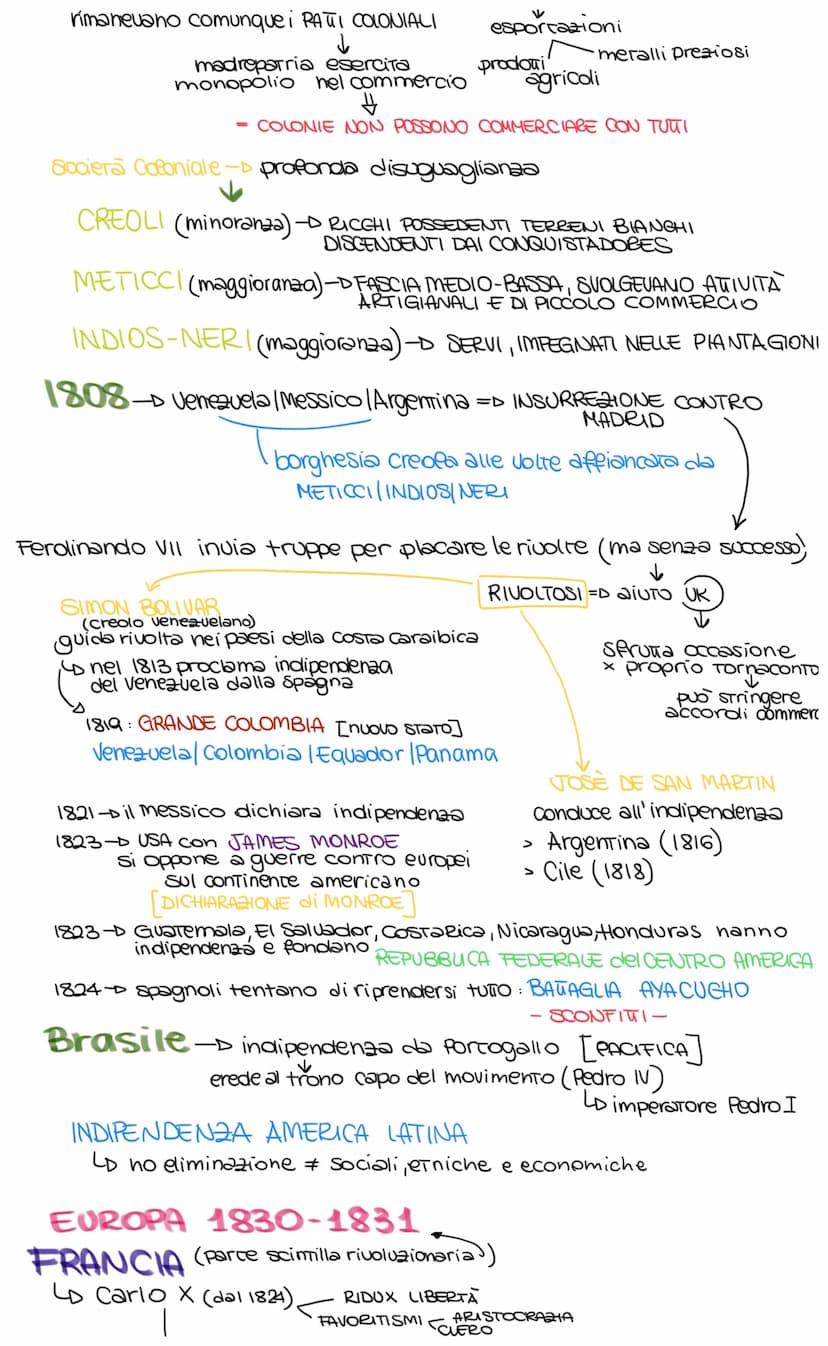 rimanevano comunque i PATTI COLONIALI
madrepatria esercita
monopolio nel commercio
= COLONIE NON POSSONO COMMERCIARE CON TUTTI
esportazioni
prodotti
agricoli
metalli preziosi
Società Coloniale → profonda disuguaglianza
CREOLI (minoranza) → RICCHI POSSEDENTI TERRENI BIANCHI
DISCENDENTI DAI CONQUISTADORES
METICCI (maggioranza) → FASCIA MEDIO-BASSA, SVOLGEVANO ATTIVITÀ
ARTIGIANALI E DI PICCOLO COMMERCIO
INDIOS-NERI (maggioranza) → SERVI, IMPEGNATI NELLE PIANTAGIONI
1808 → Venezuela/Messico/Argentina => INSURREZIONE CONTRO
MADRID
borghesia creola alle volte affiancata da
METICCI/INDIOS/NERI
Ferdinando VII invia truppe per placare le rivolte (ma senza successo)
RIVOLTOSI => aiuto UK
sfrutta occasione
x proprio tornaconto
può stringere
accordi commerc
SIMON BOLIVAR
(creolo venezuelano)
guida rivolta nei paesi della costa caraibica
↳ nel 1813 proclama indipendenza
del Venezuela dalla Spagna
1819: GRANDE COLOMBIA [nuovo stato]
Venezuela/Colombia/Equador/Panama
JOSÈ DE SAN MARTIN
conduce all'indipendenza
> Argentina (1816)
> Cile (1818)
1821 → il Messico dichiara indipendenza
1823 → USA con JAMES MONROE
si oppone a guerre contro europei
sul continente americano
[DICHIARAZIONE di MONROE]
1823 → Guatemala, El Salvador, Costarica, Nicaragua, Honduras hanno
indipendenza e fondano REPUBBLICA FEDERALE del CENTRO AMERICA
1824 → spagnoli tentano di riprendersi tutto: BATTAGLIA AYACUCHO
- SCONFITTI -
Brasile → indipendenza da Portogallo [PACIFICA]
erede al trono capo del movimento (Pedro IV)
↳ imperatore Pedro I
INDIPENDENZA AMERICA LATINA
↳ no eliminazione ≠ sociali, etniche e economiche
EUROPA 1830-1831
FRANCIA (parte scintilla rivoluzionaria)
↳ Carlo X (dal 1824)
RIDUX LIBERTÀ
FAVORITISMI
ARISTOCRAZIA
CLERO